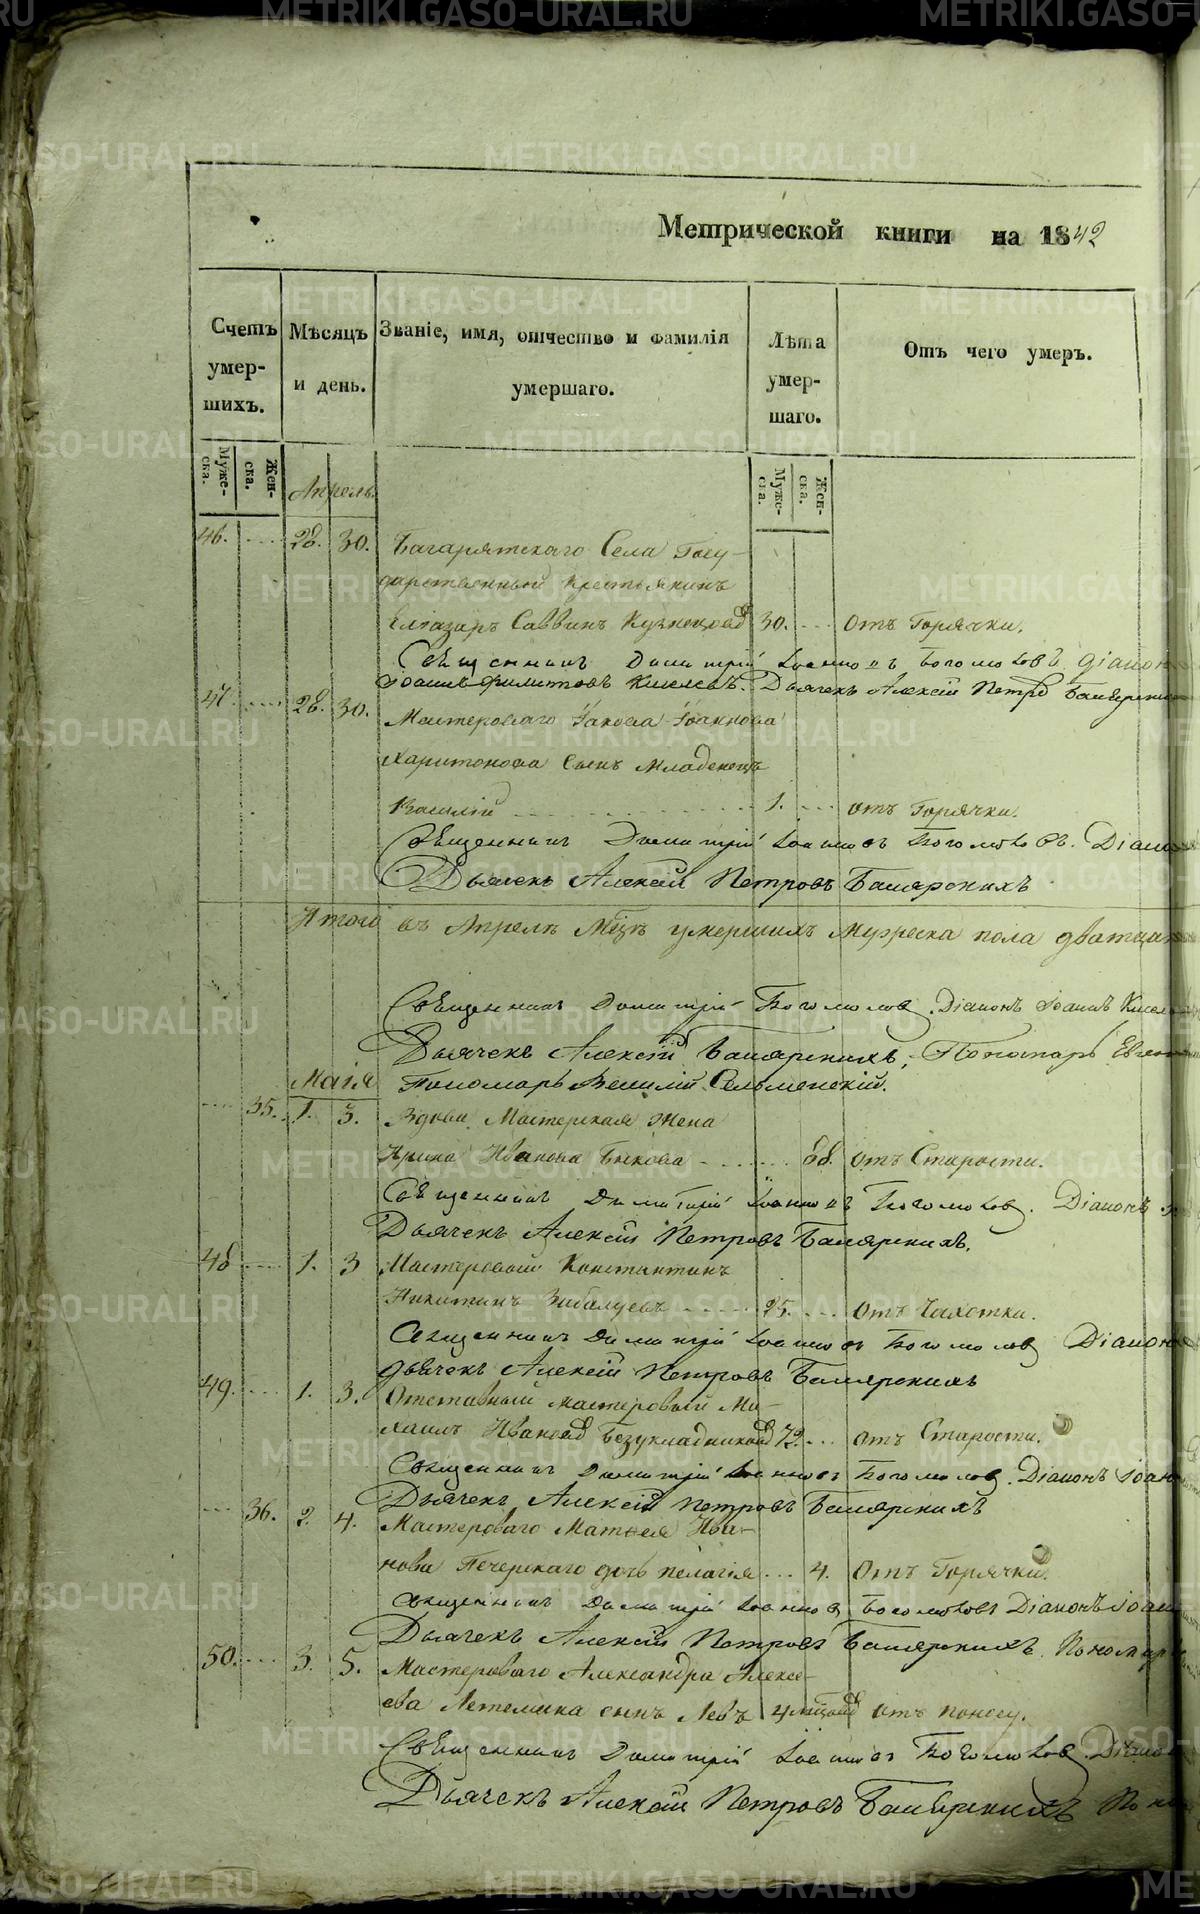 Метрической книги на 1842
Счетъ умер-шихъ.
Мѣсяцъ и день.
Званіе, имя, отчество и фамилія умершаго.
Лѣта умер-шаго.
Отъ чего умеръ.
Муже-ска.
Жен-ска.
Муже-ска.
Жен-ска.
Апрель
46. 28. 30. Багарятскаго Села Госу-
дарственный крестьянинъ
Елиазаръ Саввинъ Кузнецовъ 30. Отъ Горячки.
Священникъ Димитрій Іоанновъ Богомоловъ. Діаконъ
Іоаннъ Филитовъ Киселевъ. Дьячекъ Алексій Петровъ
47. 28. 30. Мастероваго Іакова Іоаннова
Харитонова сынъ Младенецъ
Василій 1. отъ Горячки.
Священникъ Димитрій Іоанновъ Богомоловъ. Діаконъ
Дьячекъ Алексій Петровъ
Итого въ Апрелѣ Мцѣ умершихъ Мужеска пола
Священникъ Димитрій Богомоловъ. Діаконъ Іоаннъ
Дьячекъ Алексій Пономарь
Маія Пономарь Василій
35. 1. 3. Вдова Мастерская Жена
Ирина Иванова Быкова 68. отъ Старости.
Священникъ Димитрій Іоанновъ Богомоловъ. Діаконъ
Дьячекъ Алексій Петровъ
48 1. 3 Мастеровой Константинъ
Никитинъ 25. Отъ Чахотки.
Священникъ Димитрій Іоанновъ Богомоловъ Діаконъ
Дьячекъ Алексій Петровъ
49. 1. 3. Отставный мастеровый Ми-
хаилъ Ивановъ Безукладниковъ 72. отъ Старости.
Священникъ Димитрій Іоанновъ Богомоловъ. Діаконъ Іоаннъ
Дьячекъ Алексій Петровъ
36. 2. 4. Мастероваго Матвея Ива-
нова Печерскаго дочь Пелагія 4. Отъ Горячки.
Священникъ Димитрій Іоанновъ Богомоловъ Діаконъ
Дьячекъ Алексій Петровъ Пономарь
50. 3. 5. Мастероваго Александра Алексе-
ева Летемина сынъ Левъ 4 отъ поносу.
Священникъ Димитрій Іоанновъ Богомоловъ. Діаконъ
Дьячекъ Алексій Петровъ
METRIKI.GASO-URAL.RU